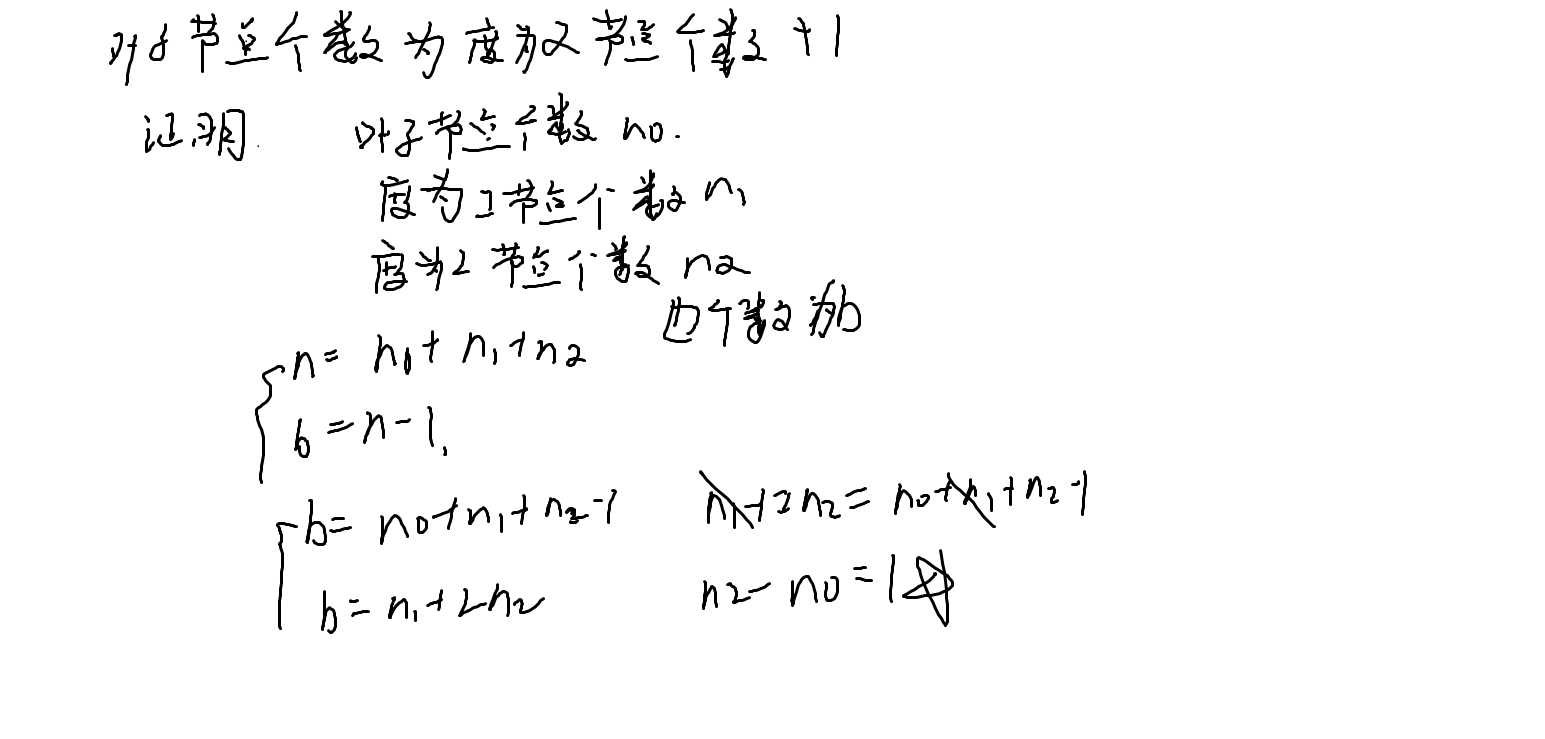 叶子节点个数为度为2节点个数+1
证明. 叶子节点个数 n0.
度为1节点个数 n1
度为2 节点个数 n2
边个数为b
n= n0+ n1+n2
b=n-1.
b= n0+n1+n2-1
n1+2n2= n0+n1+n2-1
b=n1+2n2
n2-n0=1